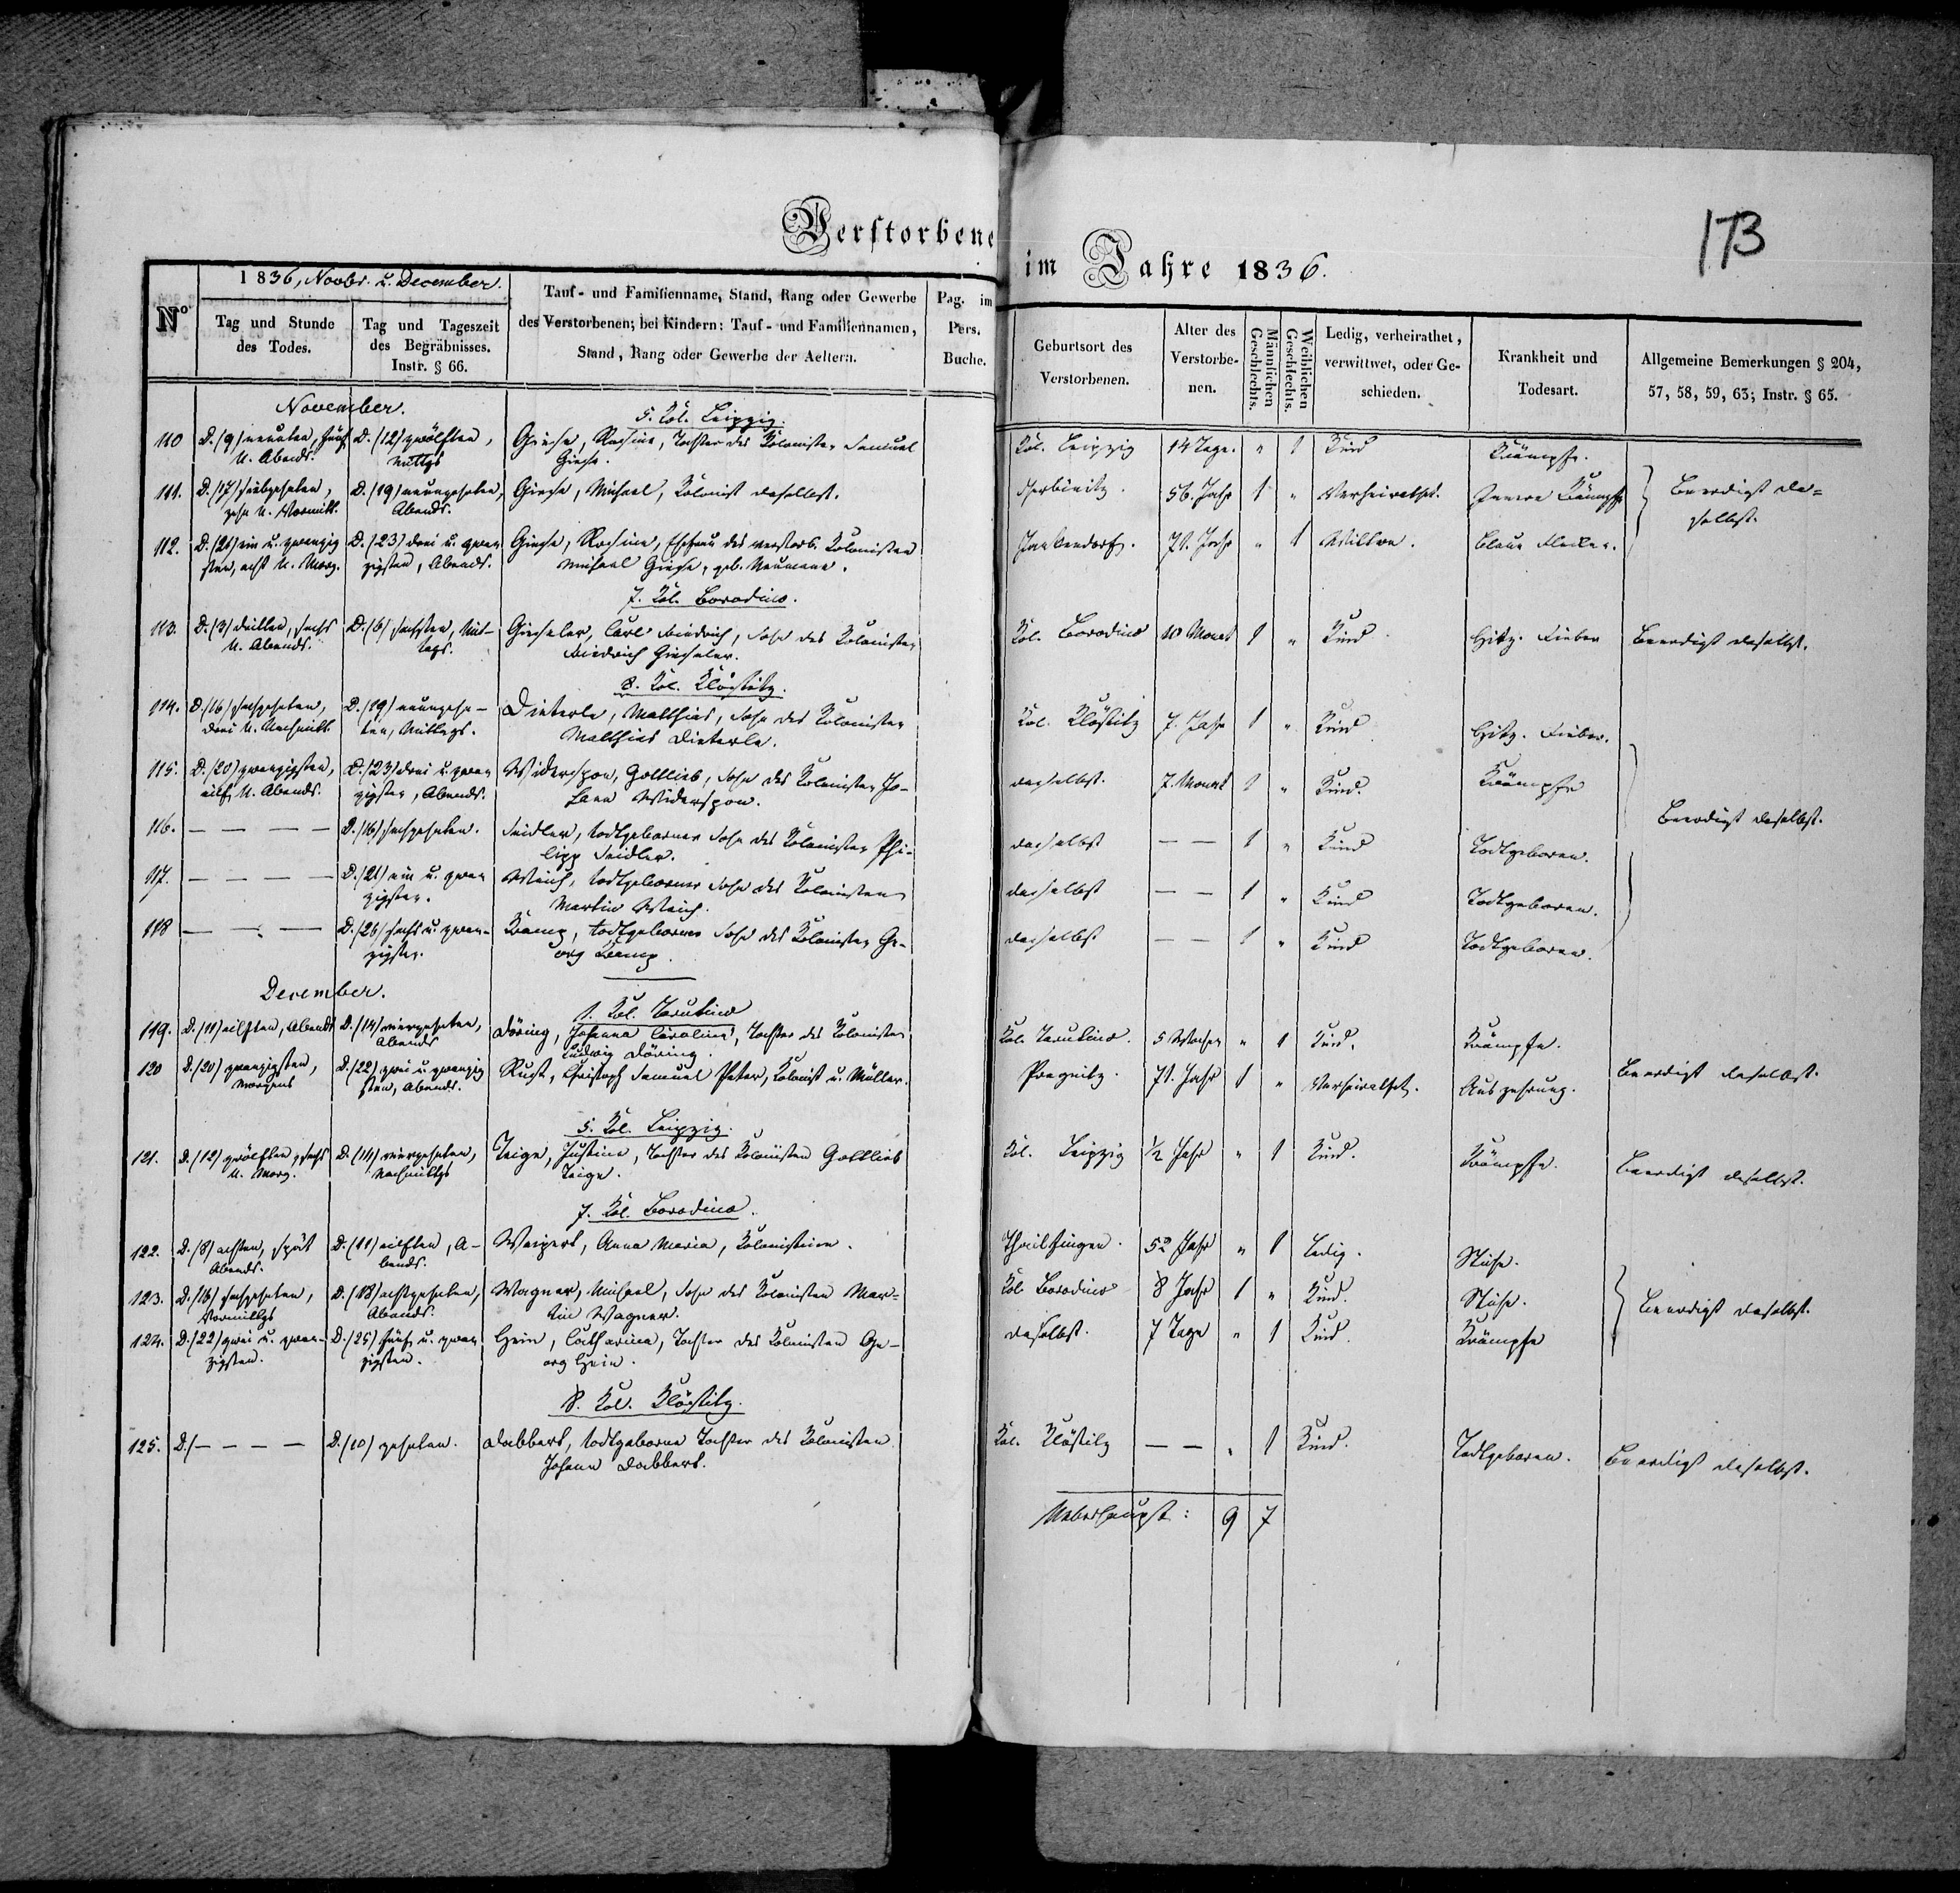 Verstorbene im Jahre 1836.
173
1836, Novbr. u. December.
No
Tag und Stunde des Todes.
Tag und Tageszeit des Begräbnisses. Instr. § 66.
Tauf- und Familienname, Stand, Rang oder Gewerbe
des Verstorbenen; bei Kindern: Tauf- und Familiennamen,
Stand, Rang oder Gewerbe der Aeltern.
Pag. im Pers. Buche.
Geburtsort des Verstorbenen.
Alter des Verstorbenen.
Männlichen Geschlechts.
Weiblichen Geschlechts.
Ledig, verheirathet, verwittwet, oder Geschieden.
Krankheit und Todesart.
Allgemeine Bemerkungen § 204, 57, 58, 59, 63; Instr. § 65.
November.
5. Kol. Leipzig.
110 D. (9) neunten, fünf U. Abends. D. (12) zwölften, Mittgs Giese, Rosine, Tochter des Kolonisten Samuel Giese. Kol. Leipzig 14 Tage. " 1 Kind Krämpfe.
111. D. (17) siebzehnten, zehn U. Vormitt. D. (19) neunzehnten, Abends. Giese, Michael, Kolonist daselbst. 56. Jahr 1 " Verheirathet. Innere Krämpfe Beerdigt daselbst.
112. D. (21) ein u. zwanzigsten, acht U. Morg. D. (23) drei u. zwanzigsten, Abends. Giese, Rosine, Ehefrau des verstorb. Kolonisten Michael Giese, geb. Neumann. Jankendorf. 71. Jahr " 1 Wittwe. Blaue Flecken.
7. Kol. Borodino.
113. D. (3) dritten, sechs U. Abends. D. (6) sechsten, Mittags. Gieseler, Carl Friedrich, Sohn des Kolonisten Friedrich Gieseler. Kol. Borodino 10 Monat 1 " Kind Hitz. Fieber Beerdigt daselbst.
8. Kol. Klöstitz.
114. D. (16) sechzehnten, drei U. Nachmitt. D. (19) neunzehnten, Mittags. Dieterle, Matthias, Sohn des Kolonisten Matthias Dieterle. Kol. Klöstitz 7. Jahr 1 " Kind Hitz. Fieber.
115. D. (20) zwanzigsten, eilf U. Abends. D. (23) drei u. zwanzigsten, Abends. Widerspon, Gottlieb, Sohn des Kolonisten Johann Widerspon. daselbst. 7. Monat 1 " Kind. Krämpfe
Beerdigt daselbst.
116. — — — — D. (16) sechzehnten. Seidler, todtgeborner Sohn des Kolonisten Philipp Seidler. daselbst — — 1 " Kind Todtgeboren.
117. — — — — D. (21) ein u. zwanzigsten. Weich, todtgeborner Sohn des Kolonisten Martin Weich. daselbst — — 1 " Kind Todtgeboren.
118 — — — D. (26) sechs u. zwanzigsten. Kranz, todtgeborner Sohn des Kolonisten Georg Kranz. daselbst — — 1 " Kind Todtgeboren.
December.
1. Kol. Tarutino
119. D. (11) eilften, Abends D. (14) vierzehnten, Abends Döring, Johanna Carolina, Tochter des Kolonisten Ludwig Döring. Kol. Tarutino. 5 Wochen " 1 Kind. Krämpfe.
120 D. (20) zwanzigsten, Morgens D. (22) zwei u. zwanzigsten, Abends. Rust, Christoph Samuel Peter, Kolonist u. Müller. 71. Jahr 1 " Verheirathet. Auszehrung. Beerdigt daselbst.
5. Kol. Leipzig.
121. D. (12) zwölften, sechs U. Morg. D. (14) vierzehnten, Nachmittgs Teige, Justine, Tochter des Kolonisten Gottlieb Teige. Kol. Leipzig 1/2 Jahr " 1 Kind. Krämpfe. Beerdigt daselbst.
7. Kol. Borodino.
122. D. (8) achten, spät Abends. D. (11) eilften, Abends. Weipert, Anna Maria, Kolonistin. Thailfingen. 52 Jahr " 1 Ledig.
123. D. (16) sechzehnten, Vormittgs D. (18) achtzehnten, Abends. Wagner, Michael, Sohn des Kolonisten Martin Wagner. Kol. Borodino 8 Jahr 1 " Kind. Beerdigt daselbst.
124. D. (22) zwei u. zwanzigsten. D. (25) fünf u. zwanzigsten. Hein, Catharina, Tochter des Kolonisten Georg Hein. daselbst. 7 Tage " 1 Kind. Krämpfe
8. Kol. Klöstitz.
125. D. (— — — — D. (10) zehnten. Dabbert, todtgeborne Tochter des Kolonisten Johann Dabbert. Kol. Klöstitz — — " 1 Kind. Todtgeboren. Beerdigt daselbst.
Ueberhaupt: 9 7